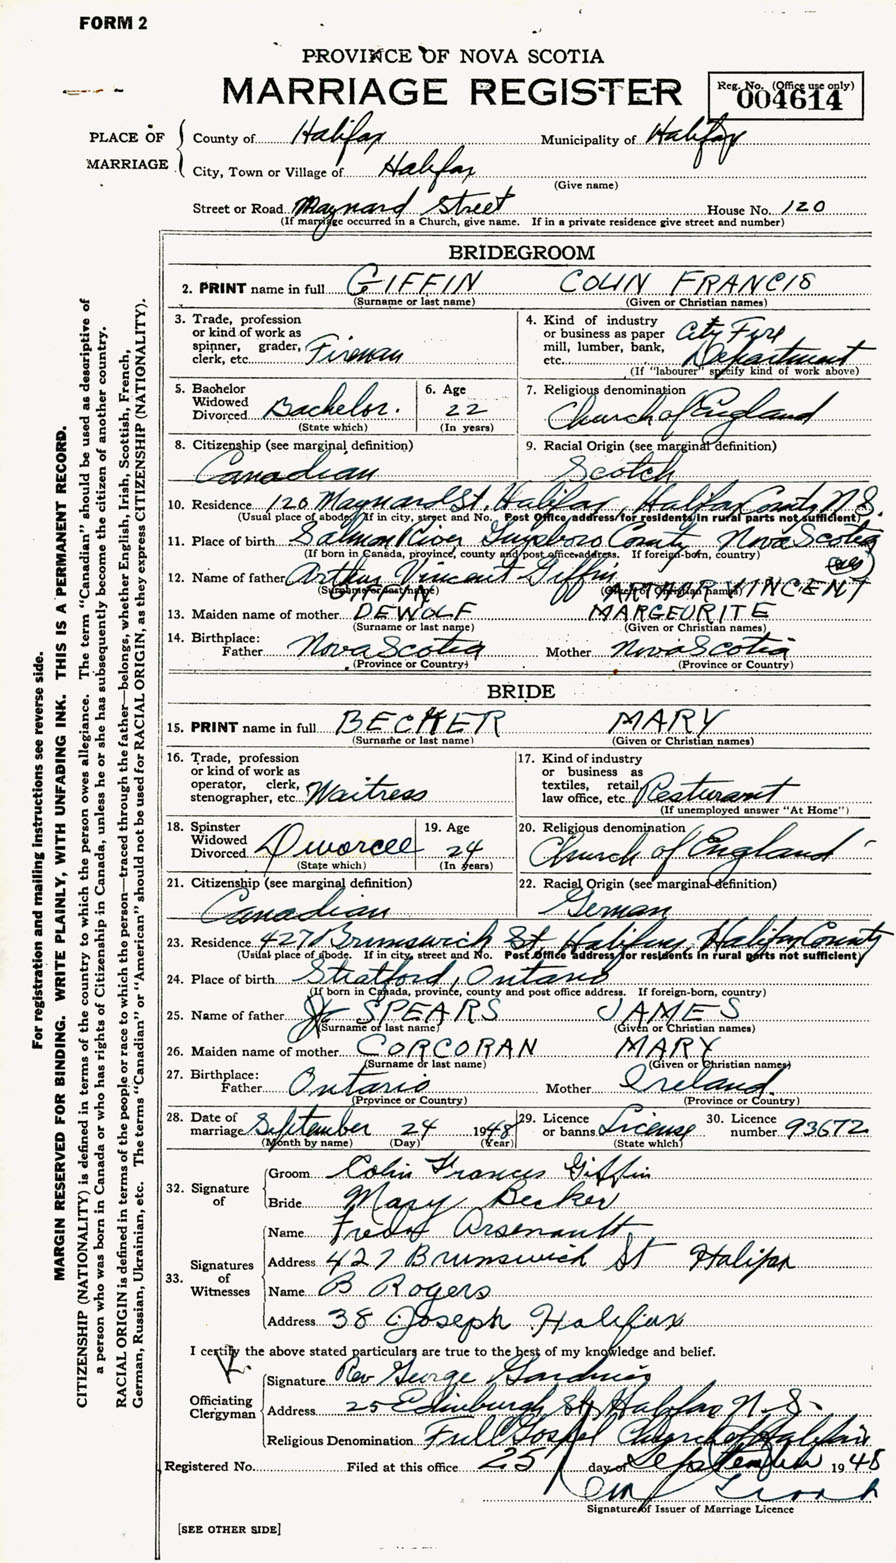 FORM 2
PROVINCE OF NOVA SCOTIA
MARRIAGE REGISTER
Reg. No. (Office use only)
004614
PLACE OF MARRIAGE
County of Halifax Municipality of Halifax
City, Town or Village of Halifax
(Give name)
Street or Road Maynard Street House No. 120
(If marriage occurred in a Church, give name. If in a private residence give street and number)
BRIDEGROOM
2. PRINT name in full GIFFIN COLIN FRANCIS
(Surname or last name) (Given or Christian names)
3. Trade, profession or kind of work as spinner, grader, clerk, etc. Fireman
4. Kind of industry or business as paper mill, lumber, bank, etc. City Fire Department
(If "labourer" specify kind of work above)
5. Bachelor Widowed Divorced Bachelor.
(State which)
6. Age 22
(In years)
7. Religious denomination Church of England
8. Citizenship (see marginal definition) Canadian
9. Racial Origin (see marginal definition) Scotch
10. Residence 120 Maynard St, Halifax, Halifax County N.S.
(Usual place of abode. If in city, street and No. Post Office address for residents in rural parts not sufficient)
11. Place of birth Salmon River Guysboro County Nova Scotia
(If born in Canada, province, county and post office address. If foreign-born, country)
12. Name of father Arthur Vincent Giffin ARTHUR VINCENT
(Surname or last name) (Given or Christian names)
13. Maiden name of mother DEWOLF MARGEURITE
(Surname or last name) (Given or Christian names)
14. Birthplace: Father Nova Scotia Mother Nova Scotia
(Province or Country) (Province or Country)
BRIDE
15. PRINT name in full BECKER MARY
(Surname or last name) (Given or Christian names)
16. Trade, profession or kind of work as operator, clerk, stenographer, etc. Waitress
17. Kind of industry or business as textiles, retail, law office, etc. Resturant
(If unemployed answer "At Home")
18. Spinster Widowed Divorced Divorcee
(State which)
19. Age 24
(In years)
20. Religious denomination Church of England
21. Citizenship (see marginal definition) Canadian
22. Racial Origin (see marginal definition) German
23. Residence 427 Brunswick St, Halifax, Halifax County
(Usual place of abode. If in city, street and No. Post Office address for residents in rural parts not sufficient)
24. Place of birth Stratford, Ontario
(If born in Canada, province, county and post office address. If foreign-born, country)
25. Name of father SPEARS JAMES
(Surname or last name) (Given or Christian names)
26. Maiden name of mother CORCORAN MARY
(Surname or last name) (Given or Christian names)
27. Birthplace: Father Ontario Mother Ireland
(Province or Country) (Province or Country)
28. Date of marriage September 24 1948
(Month by name) (Day) (Year)
29. Licence or banns License
(State which)
30. Licence number 93672
32. Signature of
Groom Colin Frances Giffin
Bride Mary Becker
33. Signatures of Witnesses
Name Freda Arsenault
Address 427 Brunswick St Halifax
Name B Rogers
Address 38 Joseph Halifax
I certify the above stated particulars are true to the best of my knowledge and belief.
Officiating Clergyman
Signature Rev George
Address 25 Edinburgh St, Halifax N.S.
Religious Denomination Full Gospel Church of Halifax
Registered No. Filed at this office 25 day of September 1948
Signature of Issuer of Marriage Licence
[SEE OTHER SIDE]
For registration and mailing instructions see reverse side.
MARGIN RESERVED FOR BINDING. WRITE PLAINLY, WITH UNFADING INK. THIS IS A PERMANENT RECORD.
CITIZENSHIP (NATIONALITY) is defined in terms of the country to which the person owes allegiance. The term "Canadian" should be used as descriptive of
a person who was born in Canada or who has rights of Citizenship in Canada, unless he or she has subsequently become the citizen of another country.
RACIAL ORIGIN is defined in terms of the people or race to which the person—traced through the father—belongs, whether English, Irish, Scottish, French,
German, Russian, Ukrainian, etc. The terms "Canadian" or "American" should not be used for RACIAL ORIGIN, as they express CITIZENSHIP (NATIONALITY).